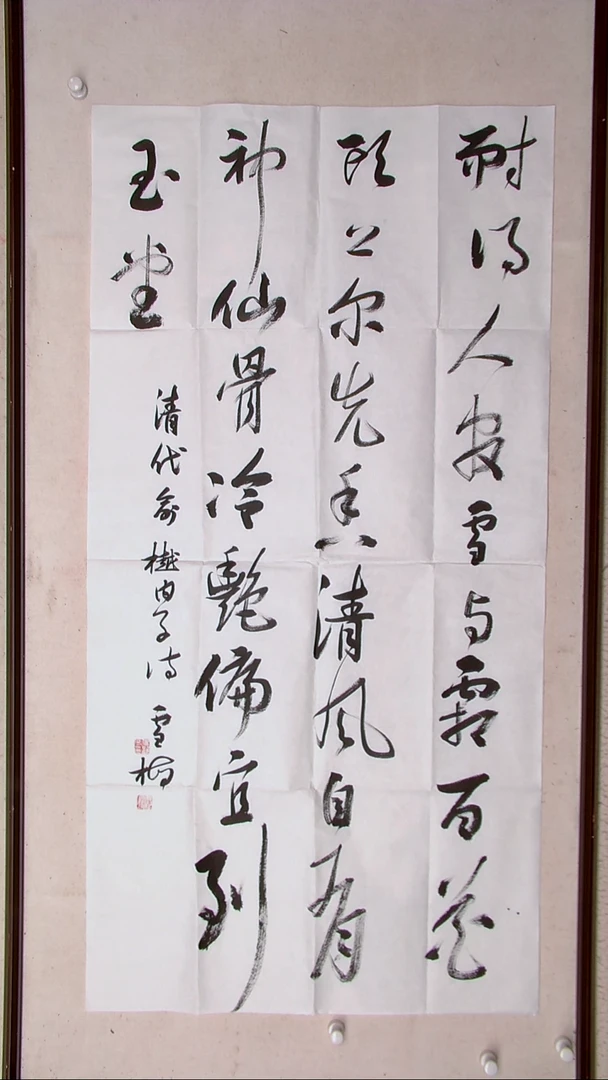 耐得人寂雪与霜百花
头上尔先香清风自有
神仙骨冷艳偏宜到
玉堂
清代俞樾内子诗 雪梅